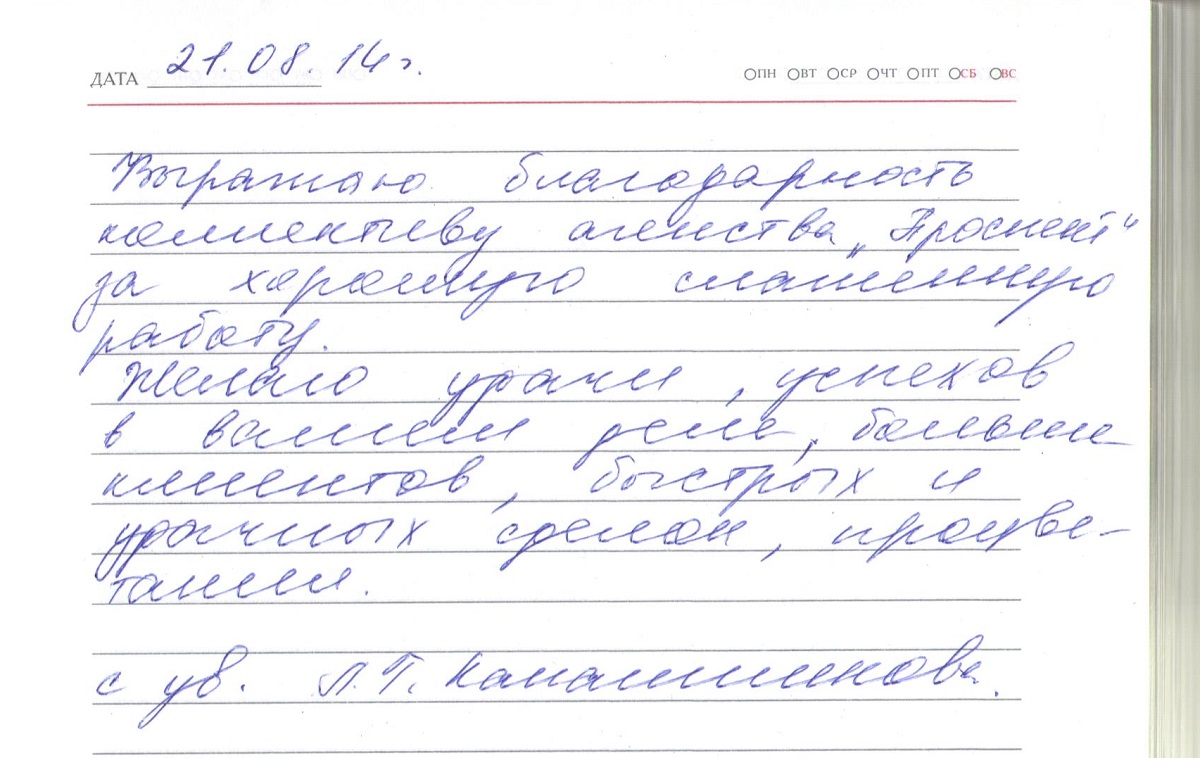 ДАТА 21.08.14 г. ПН ВТ СР ЧТ ПТ СБ ВС
Выражаю благодарность
коллективу агенства „Проспект"
за хорошую слаженную
работу.
Желаю удачи, успехов
в вашем деле, больше
клиентов, быстрых и
удачных сделок, процве-
тания.
с ув. Л.Г.